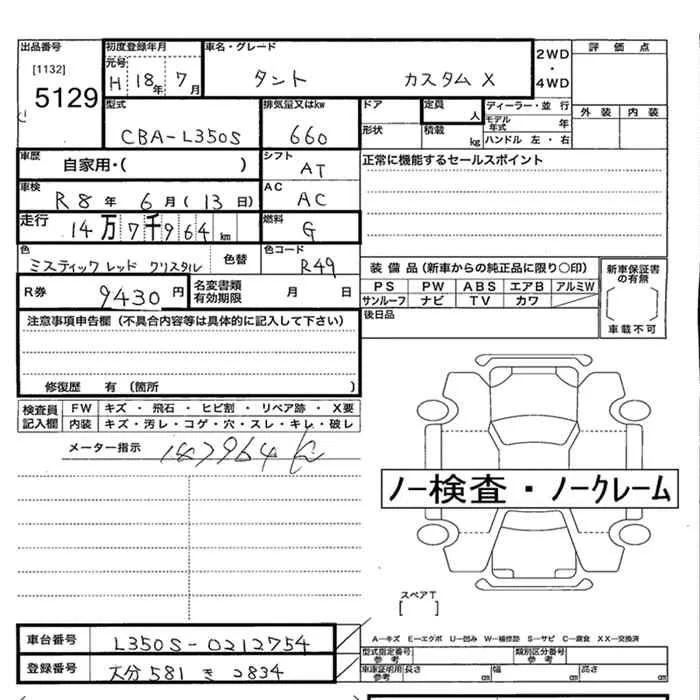 出品番号
[1132]
5129
初度登録年月
元号
H 18年 7月
車名・グレード
タント カスタム X
2WD
・
4WD
評価点
外装 内装
型式
CBA-L350S
排気量又はkw
660
ドア
形状
定員 人
積載 kg
ディーラー・並 行
モデル年式 年
ハンドル 左・右
車歴
自家用・( )
シフト
AT
正常に機能するセールスポイント
車検
R8年 6月(13日)
AC
AC
走行
14万7千964km
燃料
G
色
ミスティックレッド クリスタル
色替
色コード
R49
装備品(新車からの純正品に限り〇印)
PS PW ABS エアB アルミW
サンルーフ ナビ TV カワ
新車保証書の有無
車載不可
R券
9430円
名変書類有効期限 月 日
後日品
注意事項申告欄(不具合内容等は具体的に記入して下さい)
修復歴 有(箇所 )
検査員記入欄
FW キズ・飛石・ヒビ割・リペア跡・X要
内装 キズ・汚レ・コゲ・穴・スレ・キレ・破レ
メーター指示 147964
ノー検査・ノークレーム
スペアT
[ ]
車台番号 L350S-0212754
登録番号 大分 581 き 2834
A―キズ E―エクボ U―凹み W―補修跡 S―サビ C―腐食 XX―交換済
型式指定番号 参考
類別区分番号 参考
車庫証明用 参考 長さ cm 幅 cm 高さ cm